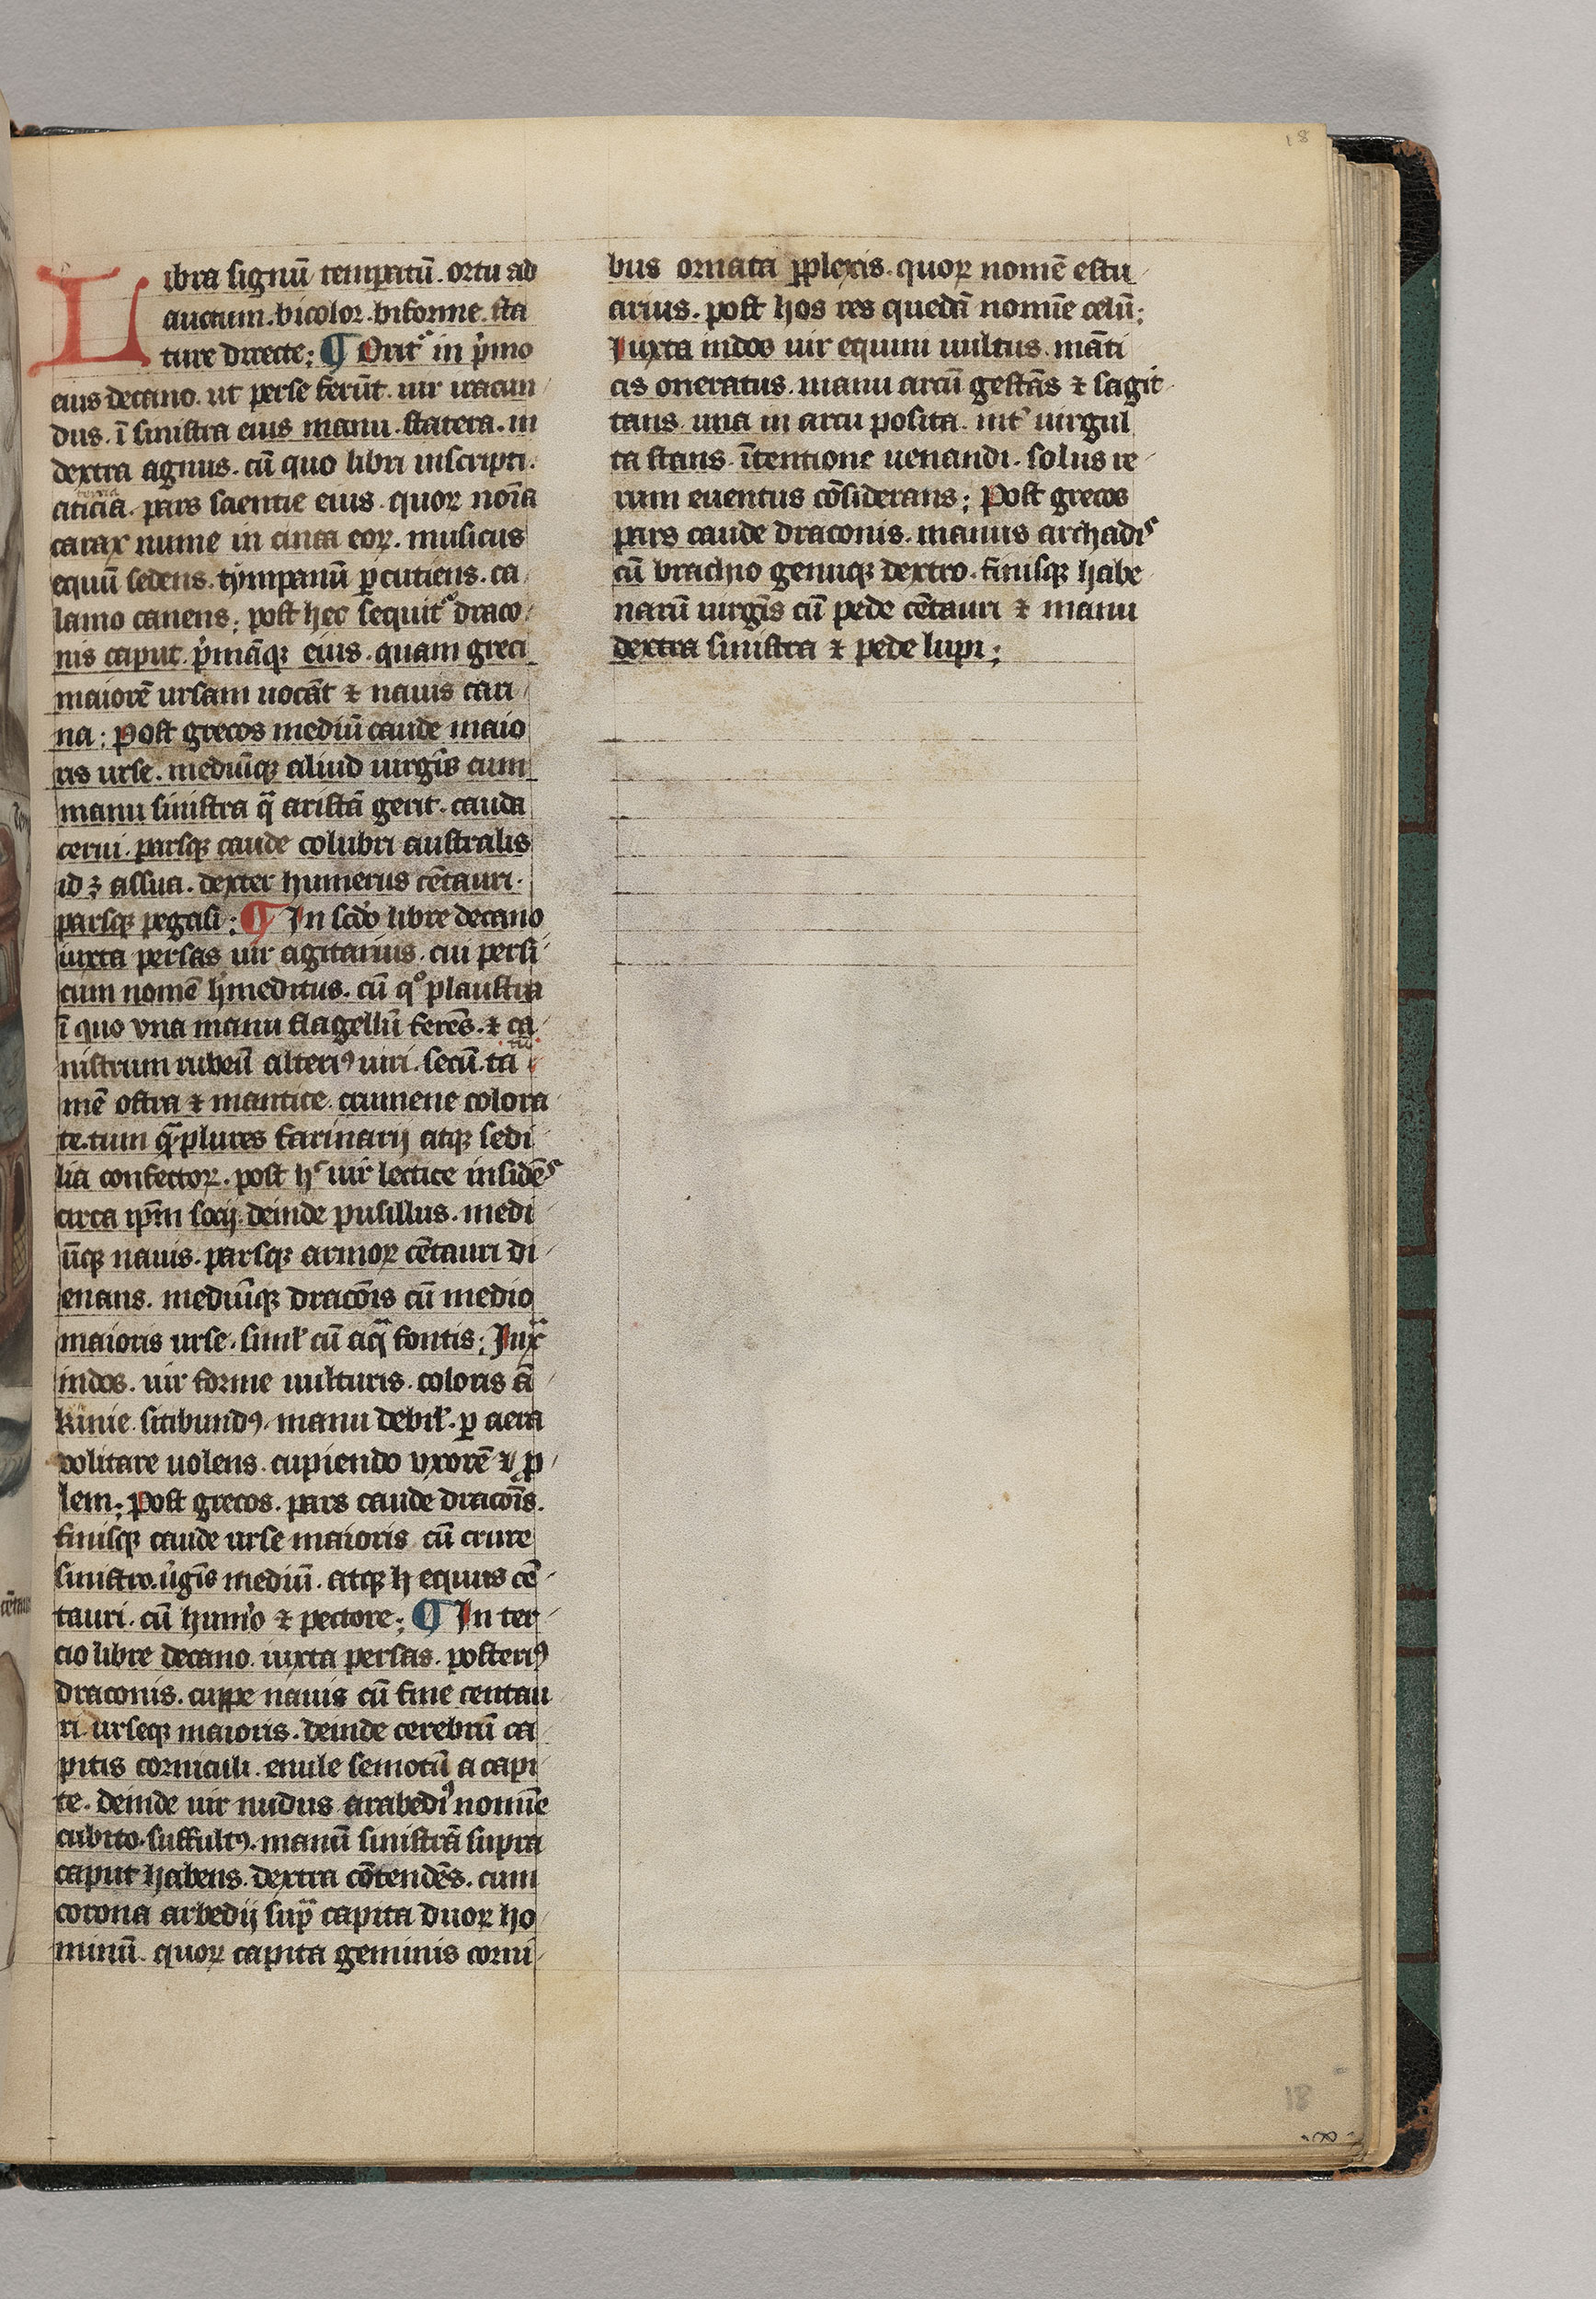 18
Libra signū temperatū. ortu ad
auctum. bicolor. biforme. sta
ture directe; ¶ Orit᷑ in pͥmo
eius decano. ut perse ferūt. uir iracun
dus. ī sinistra eius manu. statera. in
dextra agnus. cū quo libri inscripti.
pars scientie eius. quoꝝ noīa
carax nume in cinta eoꝝ. musicus
equū sedens. tympanū ꝑcutiens. ca
lamo canens; post hec sequit᷑ draco
nis caput. pͥmāqꝫ eius. quam greci
maiorē ursam uocāt ⁊ nauis cari
na; Post grecos mediū caude maio
ris urse. mediūqꝫ aliud uirgīs cum
manu sinistra q̄ aristā gerit. cauda
cerui. parsqꝫ caude colubri australis
id ꝫ assua. dexter humerus cētauri.
parsqꝫ pegasi; ¶ In scd̄o libre decano
iuxta persas uir agitarius. cui persi
cum nomē hͥmeditus. cū qͦ plaustra
ī quo vna manu flagellū ferēs. ⁊ ca
nistrum rubeū alteriꝰ uiri. secū. ta
mē ostra ⁊ mantice. crumene colora
te. tum qᷓ plures farinarij atqꝫ sedi
lia confectoꝝ. post hͨ uir lectice insidēs
circa ip̄m socij. deinde pusillus. medi
ūqꝫ nauis. parsqꝫ armoꝝ cētauri di
enans. mediūqꝫ dracōis cū medio
maioris urse. simlˀ cū aqᷓ fontis; Iuxᷓ
indos. uir forme uulturis. coloris ā
kinie. sitibundꝰ. manu debilˀ. ꝑ aera
volitare uolens. cupiendo vxorē ⁊ ꝓ
lem; Post grecos. pars caude dracōis.
finisqꝫ caude urse maioris cū crure
sinistro. uͥgīs mediū. atqꝫ h equus cē
tauri. cū humͦo ⁊ pectore; ¶ In ter
cio libre decano. iuxta persas. posteriꝰ
draconis. cuppe nauis cū fine centau
ri. urseqꝫ maioris. deinde cerebrū ca
pitis corniculi. enule semotū a capi
te. deinde uir nudus. arabediꝰ nomīe
cubito. suffultꝰ. manū sinistrā supra
caput habens. dextra cōtendēs. cum
corona arbedij supᷓ capita duoꝝ ho
minū. quoꝝ capita geminis corni
bus ornata ꝑplexis. quoꝝ nomē estu
arius. post hos res quedā nomīe celū;
Iuxta indos uir equini uultus. māti
cis oneratus. manu arcū gestās ⁊ sagit
tans. una in arcu posita. int᷑ uirgul
ta stans. ītentione uenandi. solus re
rum euentus cōsiderans; Post grecos
pars caude draconis. manus archadis
cū brachio genuqꝫ dextro. finisqꝫ habe
narū uirgīs cū pede cētauri ⁊ manu
dextra sinistra ⁊ pede lupi;
18